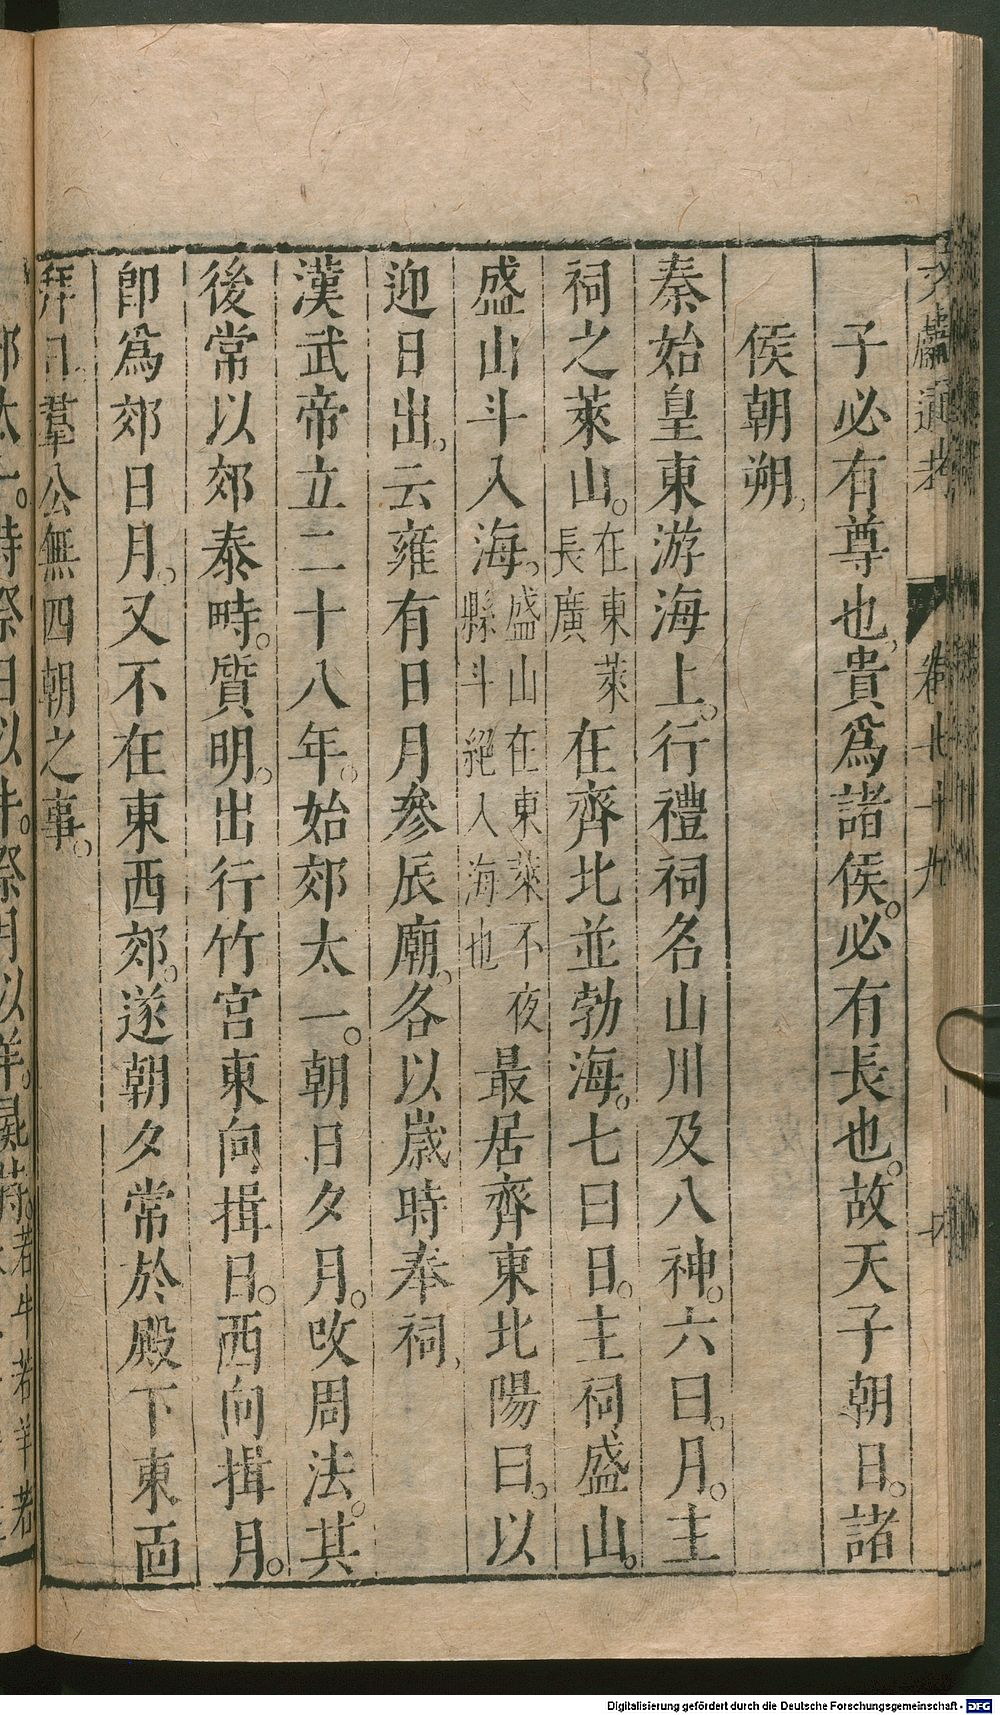 文獻通考 卷七十九
子必有尊也貴爲諸侯。必有長也。故天子朝日。諸
侯朝朔
秦始皇東游海上。行禮祠名山川及八神。六曰。月。主
祠之萊山。在東萊長廣在齊北並勃海。七曰日。主祠盛山。
盛山斗入海。盛山在東萊不夜縣斗絕入海也最居齊東北陽曰。以
迎日出。云雍有日月參辰廟。各以歲時奉祠
漢武帝立二十八年。始郊太一。朝日夕月。攺周法。其
後常以郊泰畤。質明。出行竹宮東向揖日。西向揖月。
卽爲郊日月。又不在東西郊。遂朝夕常於殿下東面
拜日羣公無四朝之事。
Digitalisierung gefördert durch die Deutsche Forschungsgemeinschaft - DFG